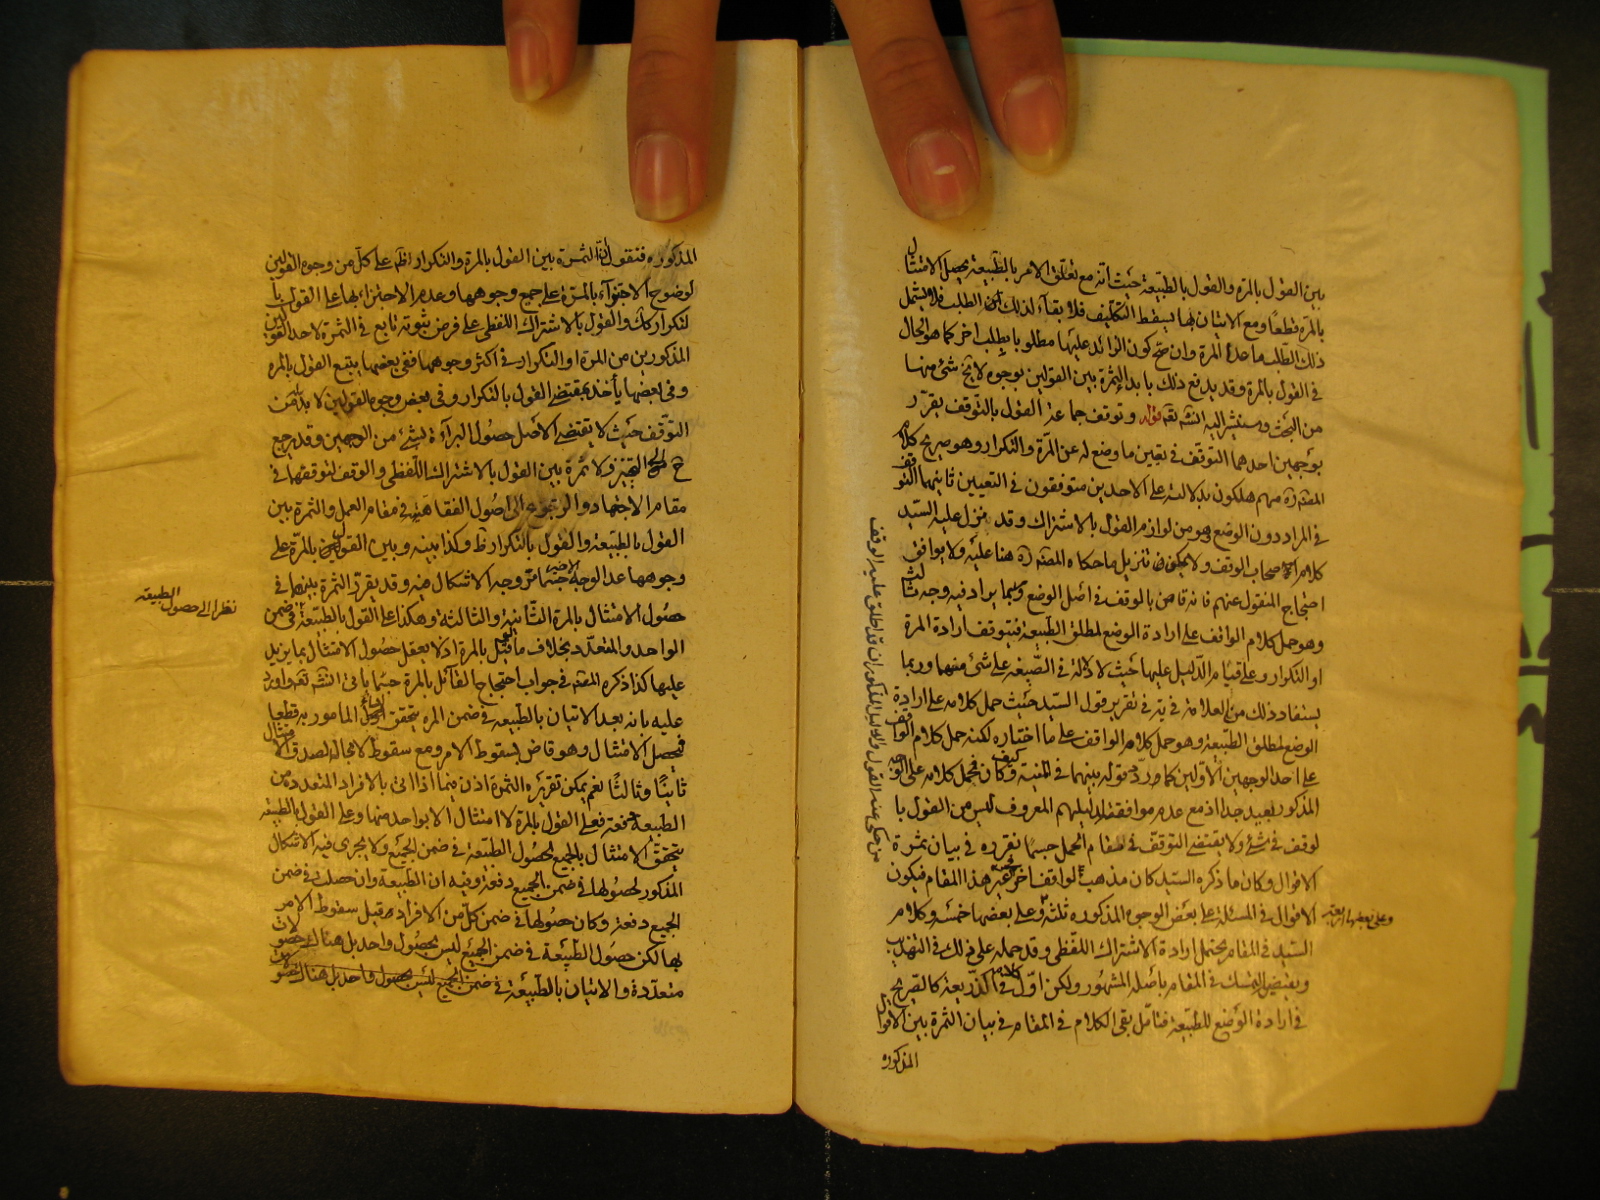 بين القول بالمرة والقول بالطبيعة حيث انه مع تعلق الامر بالطبيعة يحصل الامتثال
بالمرة قطعا ومع الاتيان بها يسقط التكليف فلا بقاء لذلك الطلب فلا يشمل
ذلك الطلب ما عدا المرة وان صح كون الزائد عليها مطلوبا بطلب اخر كما هو الحال
في القول بالمرة وقد يدفع ذلك بابداء الثمرة بين القولين بوجوه لا يخ شئ منها
من البحث وسنشير اليه انشه تقه قوله وتوقف جماعة القول بالتوقف يقرر
بوجهين احدهما التوقف في تعيين ما وضع له عن المرة والتكرار وهو صريح كلام
المصنف ره منهم هل كون بدلالته على الاحدين متوقفون في التعيين ثانيهما التوقف
في المراد دون الوضع فهو من لوازم القول بالاشتراك وقد نزل عليه السيد
كلام اصحاب الوقف ولا يمكن تنزيل ما حكاه المصنف ره هنا عليه ولا يوافق
احتجاج المنقول عنهم فانه قاض بالوقف في اصل الوضع وربما يراد فيه وجه ثالث
وهو حمل كلام الواقف على ارادة الوضع لمطلق الطبيعة فيتوقف ارادة المرة
او التكرار وعلى قيام الدليل عليها حيث لا دلالة في الصيغة على شئ منهما وربما
يستفاد ذلك من العلامة في يه في تقرير قول السيد حيث حمل كلامه على ارادة
الوضع لمطلق الطبيعة وهو حمل كلام الواقف على ما اختاره لكنه حمل كلام الواقف
على احد الوجهين الاولين كما وردد قوله بينهما في المنية وكيف كان فحمل كلامه على الوجه
المذكور بعيد جدا اذ مع عدم موافقته لدليلهم المعروف ليس من القول با
لوقف في شئ ولا يقتضي التوقف في مقام الحمل حسبما نقرره في بيان ثمرة
الاقوال وكان ما ذكره السيد كان مذهب الواقف اخر غير هذا المقام فيكون
الاقوال في المسئلة على بعض الوجوه المذكوره ثلثة وعلى بعضها خمسة وكلام
وعلى بعضها اربعة
السيد في المقام يحتمل ارادة الاشتراك اللفظي وقد حمله على ذلك في التهذيب
ويعضده التمسك في المقام باصله المشهور ولكن اول كلامه في الذريعة كالصريح
في ارادة الوضع للطبيعة فتامل بقى الكلام في المقام في بيان الثمرة بين الاقوال
المذكوره
من حكى عنه القول والدليل المذكور ان قد اطلق عليه الوقف
المذكوره فنقول ان الثمرة بين القول بالمرة والتكرار ظم على كل من وجوه القولين
لوضوح الاجتزاء بالمرة على جميع وجوهها وعدم الاجتزاء بها على القول با
لتكرار كك والقول بالاشتراك اللفظي على فرض ثبوته تابع في الثمرة لاحد القولين
المذكورين من المرة او التكرار في اكثر وجوهها ففي بعضها يتبع القول بالمرة
وفي بعضها ياخذ بمقتضى القول بالتكرار وفي بعض وجوه القولين لا بد من
التوقف حيث لا يقتضي الاصل حصول البراءة بشئ من الوجهين وقد يرجع
ح الى التخيير فلا ثمرة بين القول بالاشتراك اللفظي والوقف لتوقفهما في
مقام الاجتهاد والرجوع الى اصول الفقاهة في مقام العمل والثمرة بين
القول بالطبيعة والقول بالتكرار ظ وكذا بينه وبين القول بالمرة على
وجوهها عدا الوجه الاخير حسبما مر وجه الاشكال فيه وقد يقرر الثمرة بينهما في
حصول الامتثال بالمرة الثانية والثالثة وهكذا على القول بالطبيعة في ضمن
نظرا الى حصول الطبيعة
الواحد والمتعدد بخلاف ما قيل بالمرة اذ لا يعقل حصول الامتثال بما يزيد
عليها كذا ذكره المصنف في جواب احتجاج القائل بالمرة حسبما ياتي انشه تقه واورد
عليه بانه بعد الاتيان بالطبيعة في ضمن المرة يتحقق اداء المامور به قطعا
فيحصل الامتثال وهو قاض بسقوط الامر ومع سقوط لا مجال لصدق الامتثال
ثانيا وثالثا نعم يمكن تقريره الثمرة اذن فيما اذا اتى بالافراد المتعددة من
الطبيعة دفعة فعلى القول بالمرة لا امتثال الا بواحد منها وعلى القول بالطبيعة
يتحقق الامتثال بالجميع لحصول الطبيعة في ضمن الجميع ولا يجري فيه الاشكال
المذكور لحصولها في ضمن الجميع دفعة وفيه ان الطبيعة وان حصلت في ضمن
الجميع دفعة وكان حصولها في ضمن كل من الافراد قبل سقوط الامر
بها لكن حصول الطبيعة في ضمن الجميع ليس بحصول واحد بل هناك حصولات
متعددة والاتيان بالطبيعة في ضمن الجميع ليس بحصول واحد بل هناك حصو